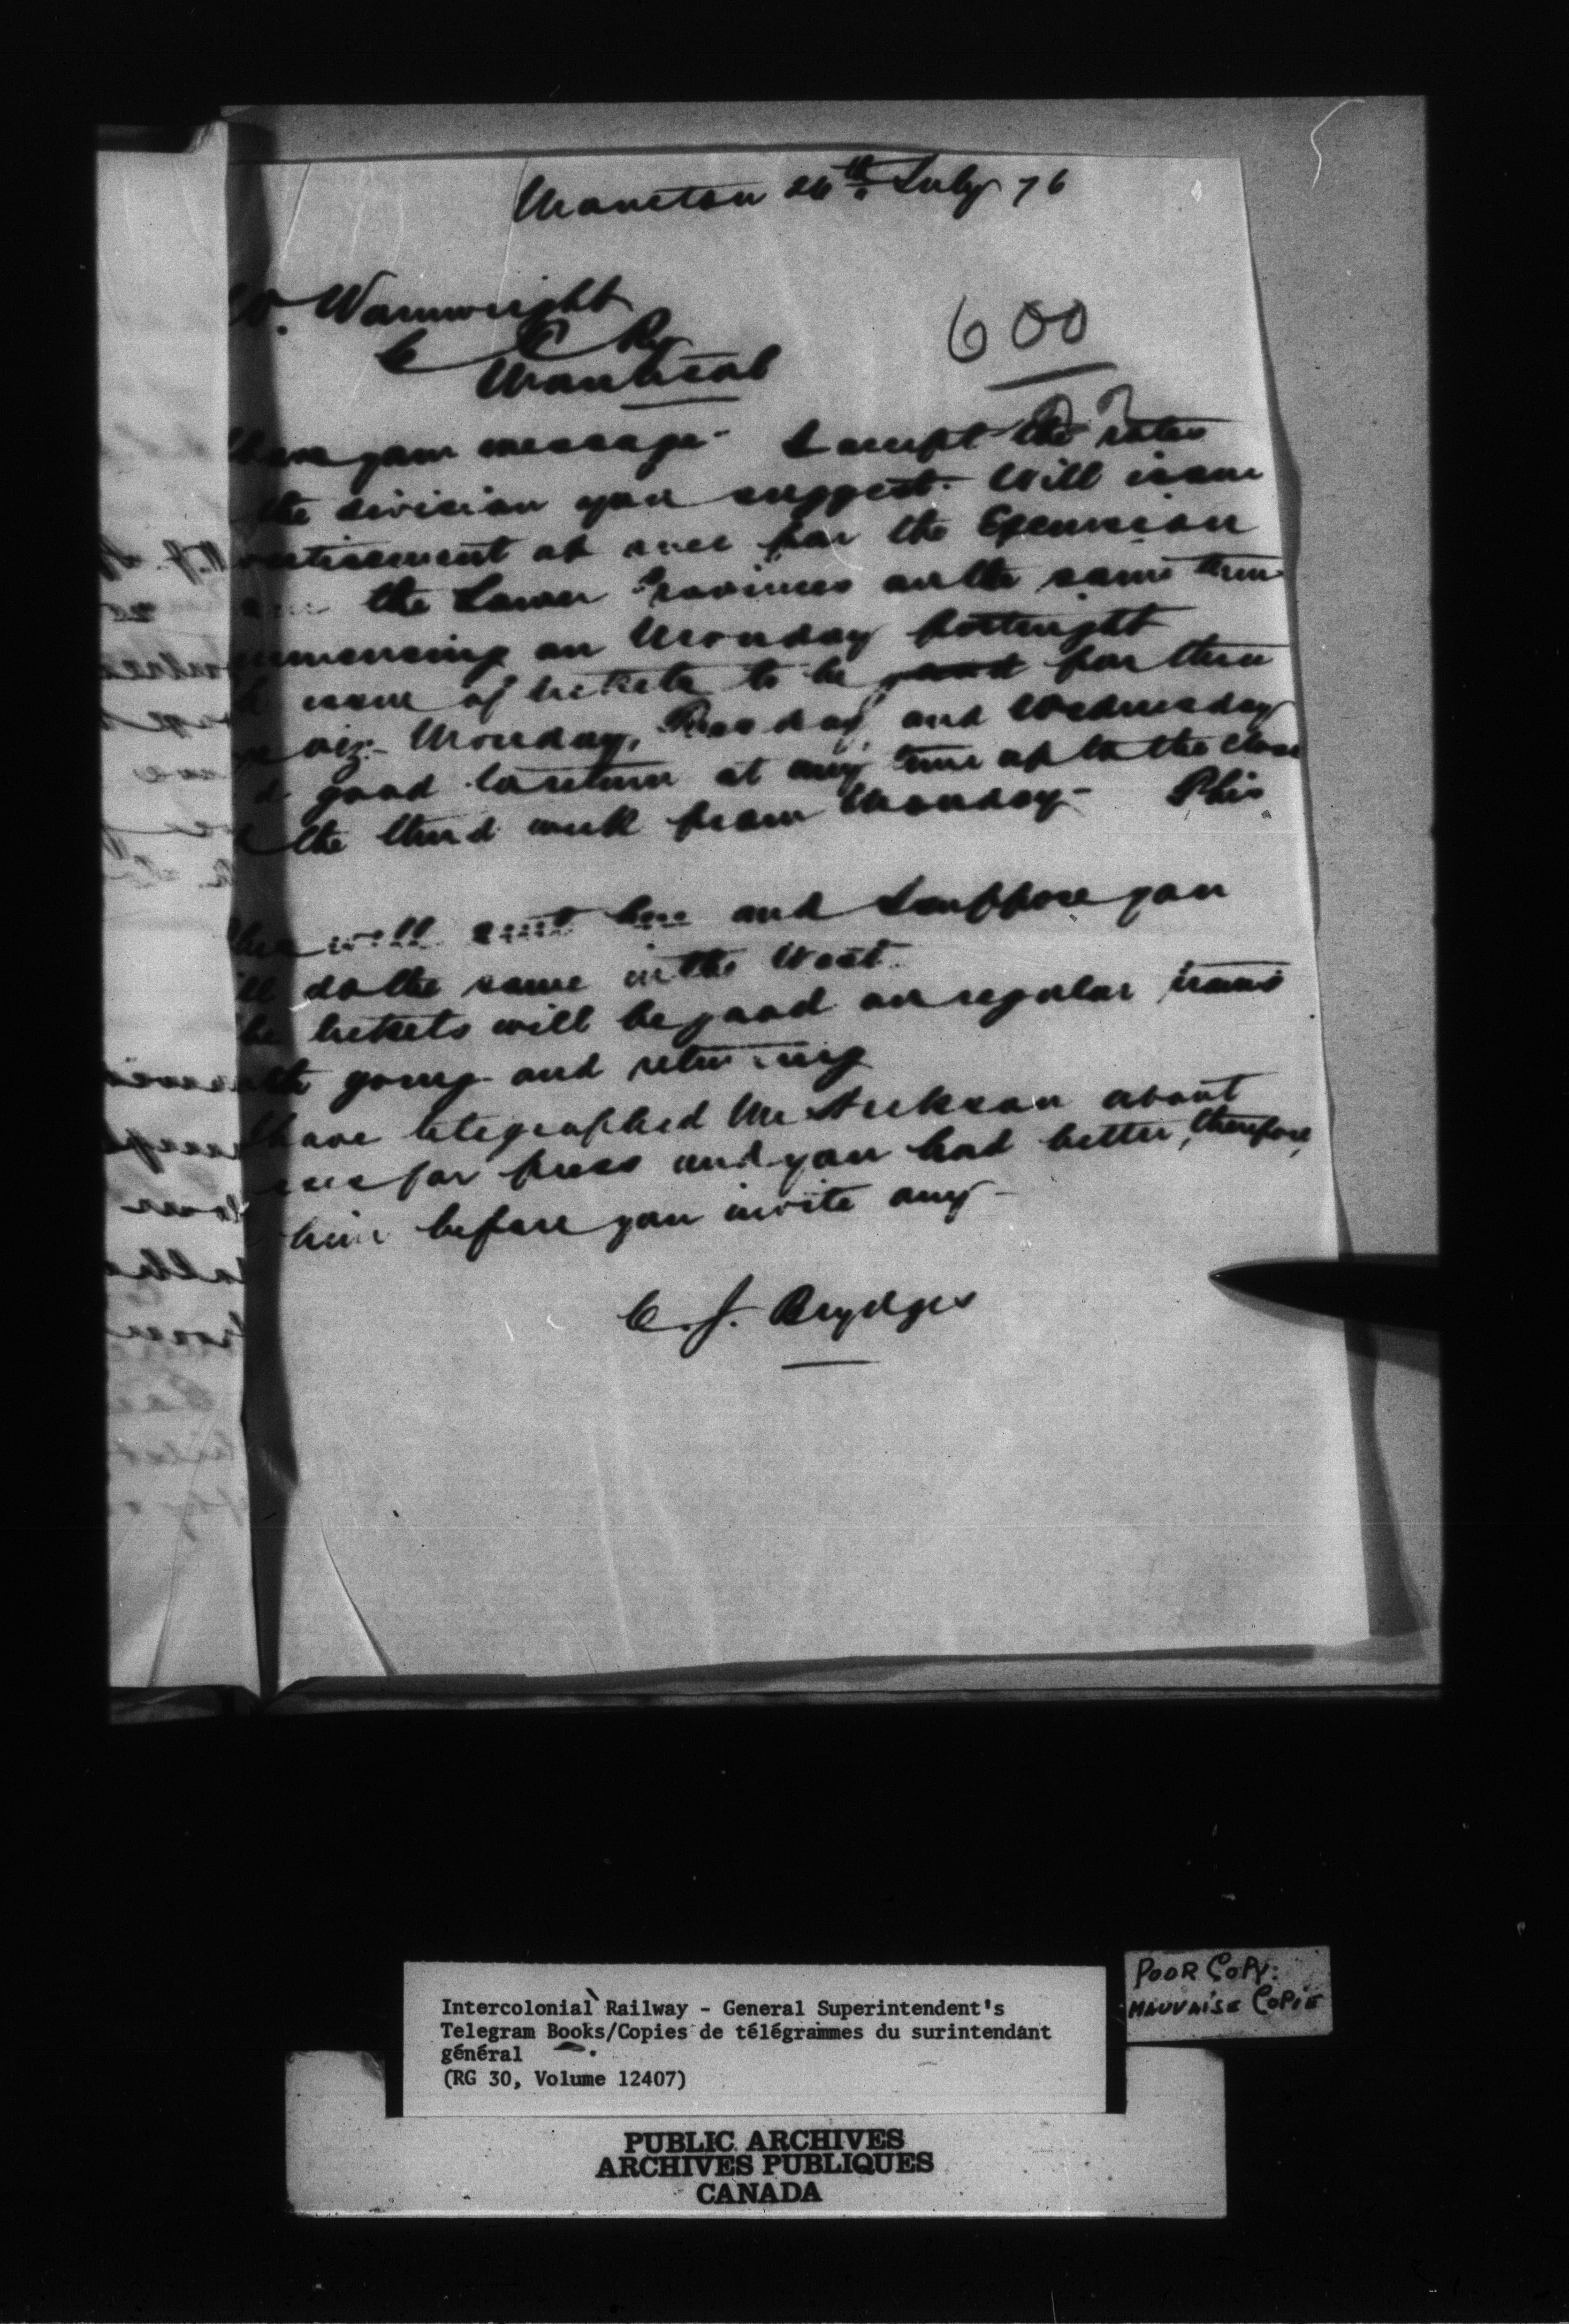 Moncton 26th July 76
W. Wainwright
G T Ry
Montreal
600
have your message - I accept the rates
the division you suggest. Will issue
vertisement at once for the Excursion
the Lower Provinces on the same
mmencing on Monday fortnight
issue of tickets to be good for three
viz - Monday, Tuesday and Wednesday
d good to return at any time up to the close
the third week from Monday - This
will suit here and I suppose you
ill do the same in the West.
he tickets will be good on regular trains
oth going and returning
have telegraphed Mr Hickson about
for press and you had better, therefore,
him before you invite any -
C. J. Brydges
Intercolonial Railway - General Superintendent's
Telegram Books/Copies de télégrammes du surintendant
général
(RG 30, Volume 12407)
POOR COPY.
MAUVAISE COPIE
PUBLIC ARCHIVES
ARCHIVES PUBLIQUES
CANADA